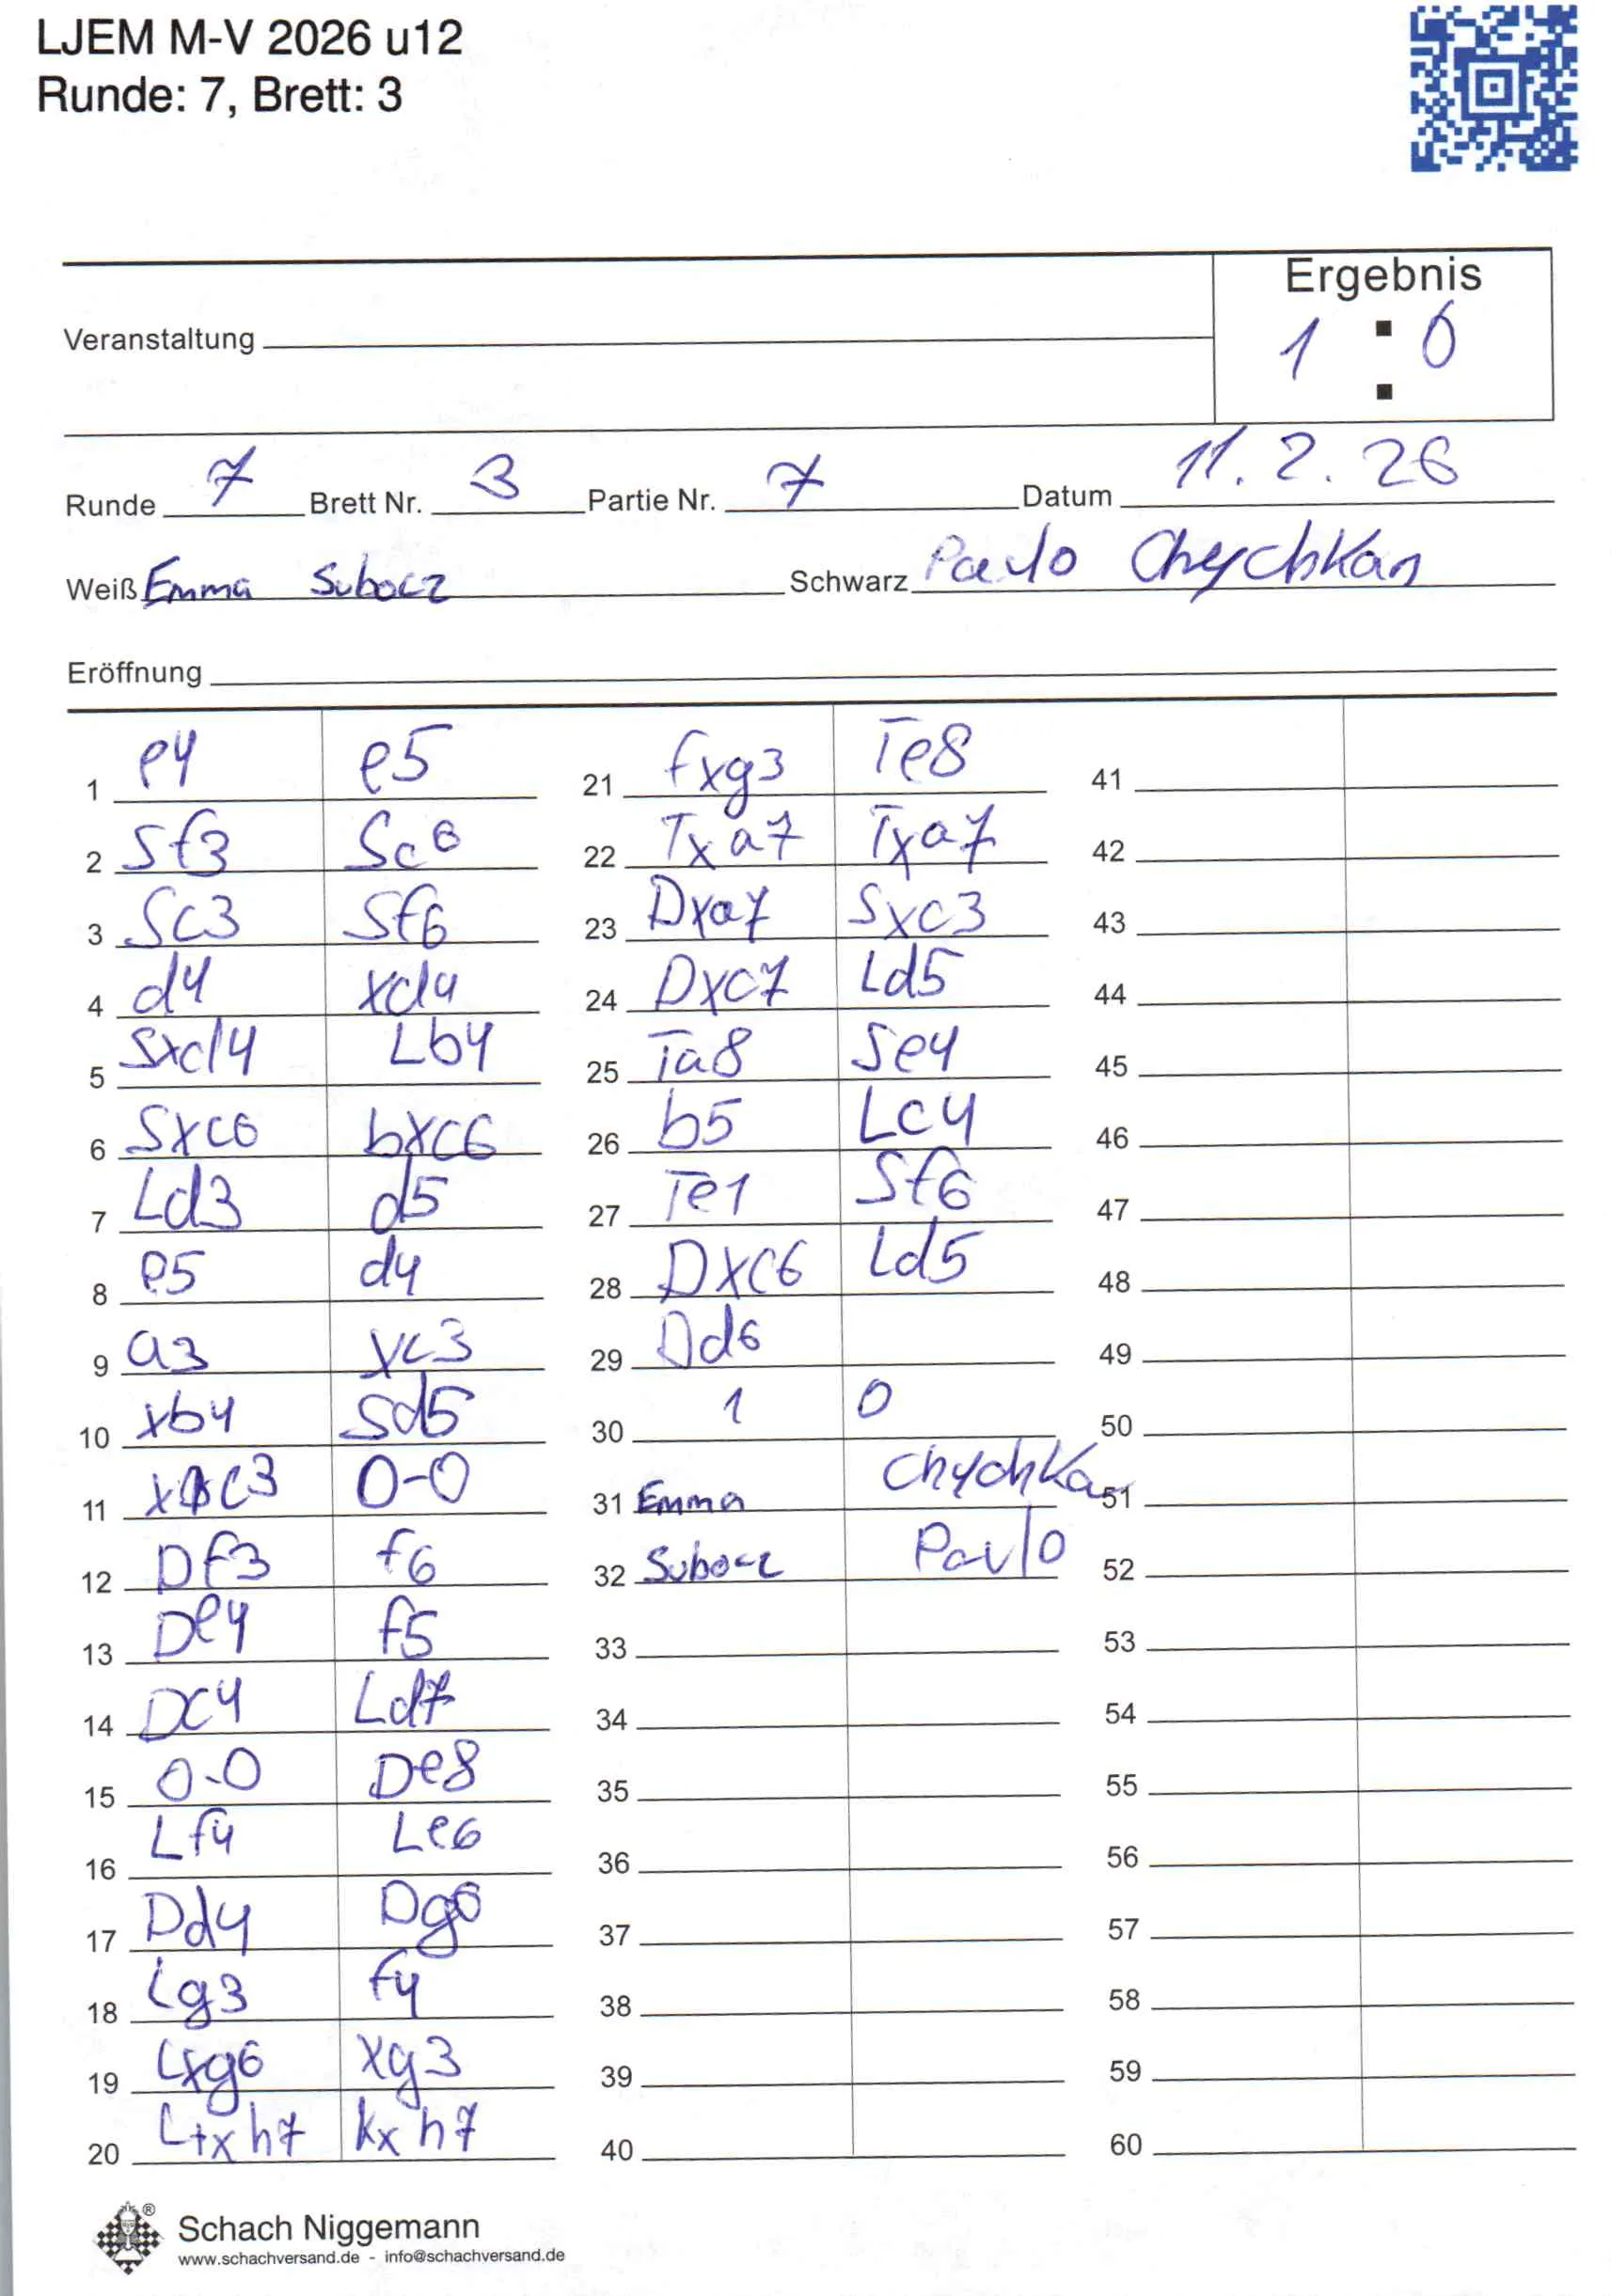 LJEM M-V 2026 u12
Runde: 7, Brett: 3
Ergebnis
1 : 0
Veranstaltung
Runde 7 Brett Nr. 3 Partie Nr. 7 Datum 11.2.26
Weiß Emma Subocz Schwarz Pavlo Chychkan
Eröffnung
1 e4 e5
2 Sf3 Sc6
3 Sc3 Sf6
4 d4 xd4
5 Sxd4 Lb4
6 Sxc6 bxc6
7 Ld3 d5
8 e5 d4
9 a3 xc3
10 xb4 Sd5
11 xc3 0-0
12 Df3 f6
13 De4 f5
14 Dc4 Ld7
15 0-0 De8
16 Lf4 Le6
17 Dd4 Dg6
18 Lg3 f4
19 Lxg6 xg3
20 L+xh7 kxh7
21 fxg3 Te8
22 Txa7 Txa7
23 Dxa7 Sxc3
24 Dxc7 Ld5
25 Ta8 Se4
26 b5 Lc4
27 Te1 Sf6
28 Dxc6 Ld5
29 Dd6
30 1 0
31 Emma Chychkan
32 Subocz Pavlo
33
34
35
36
37
38
39
40
41
42
43
44
45
46
47
48
49
50
51
52
53
54
55
56
57
58
59
60
®
Schach Niggemann
www.schachversand.de - info@schachversand.de